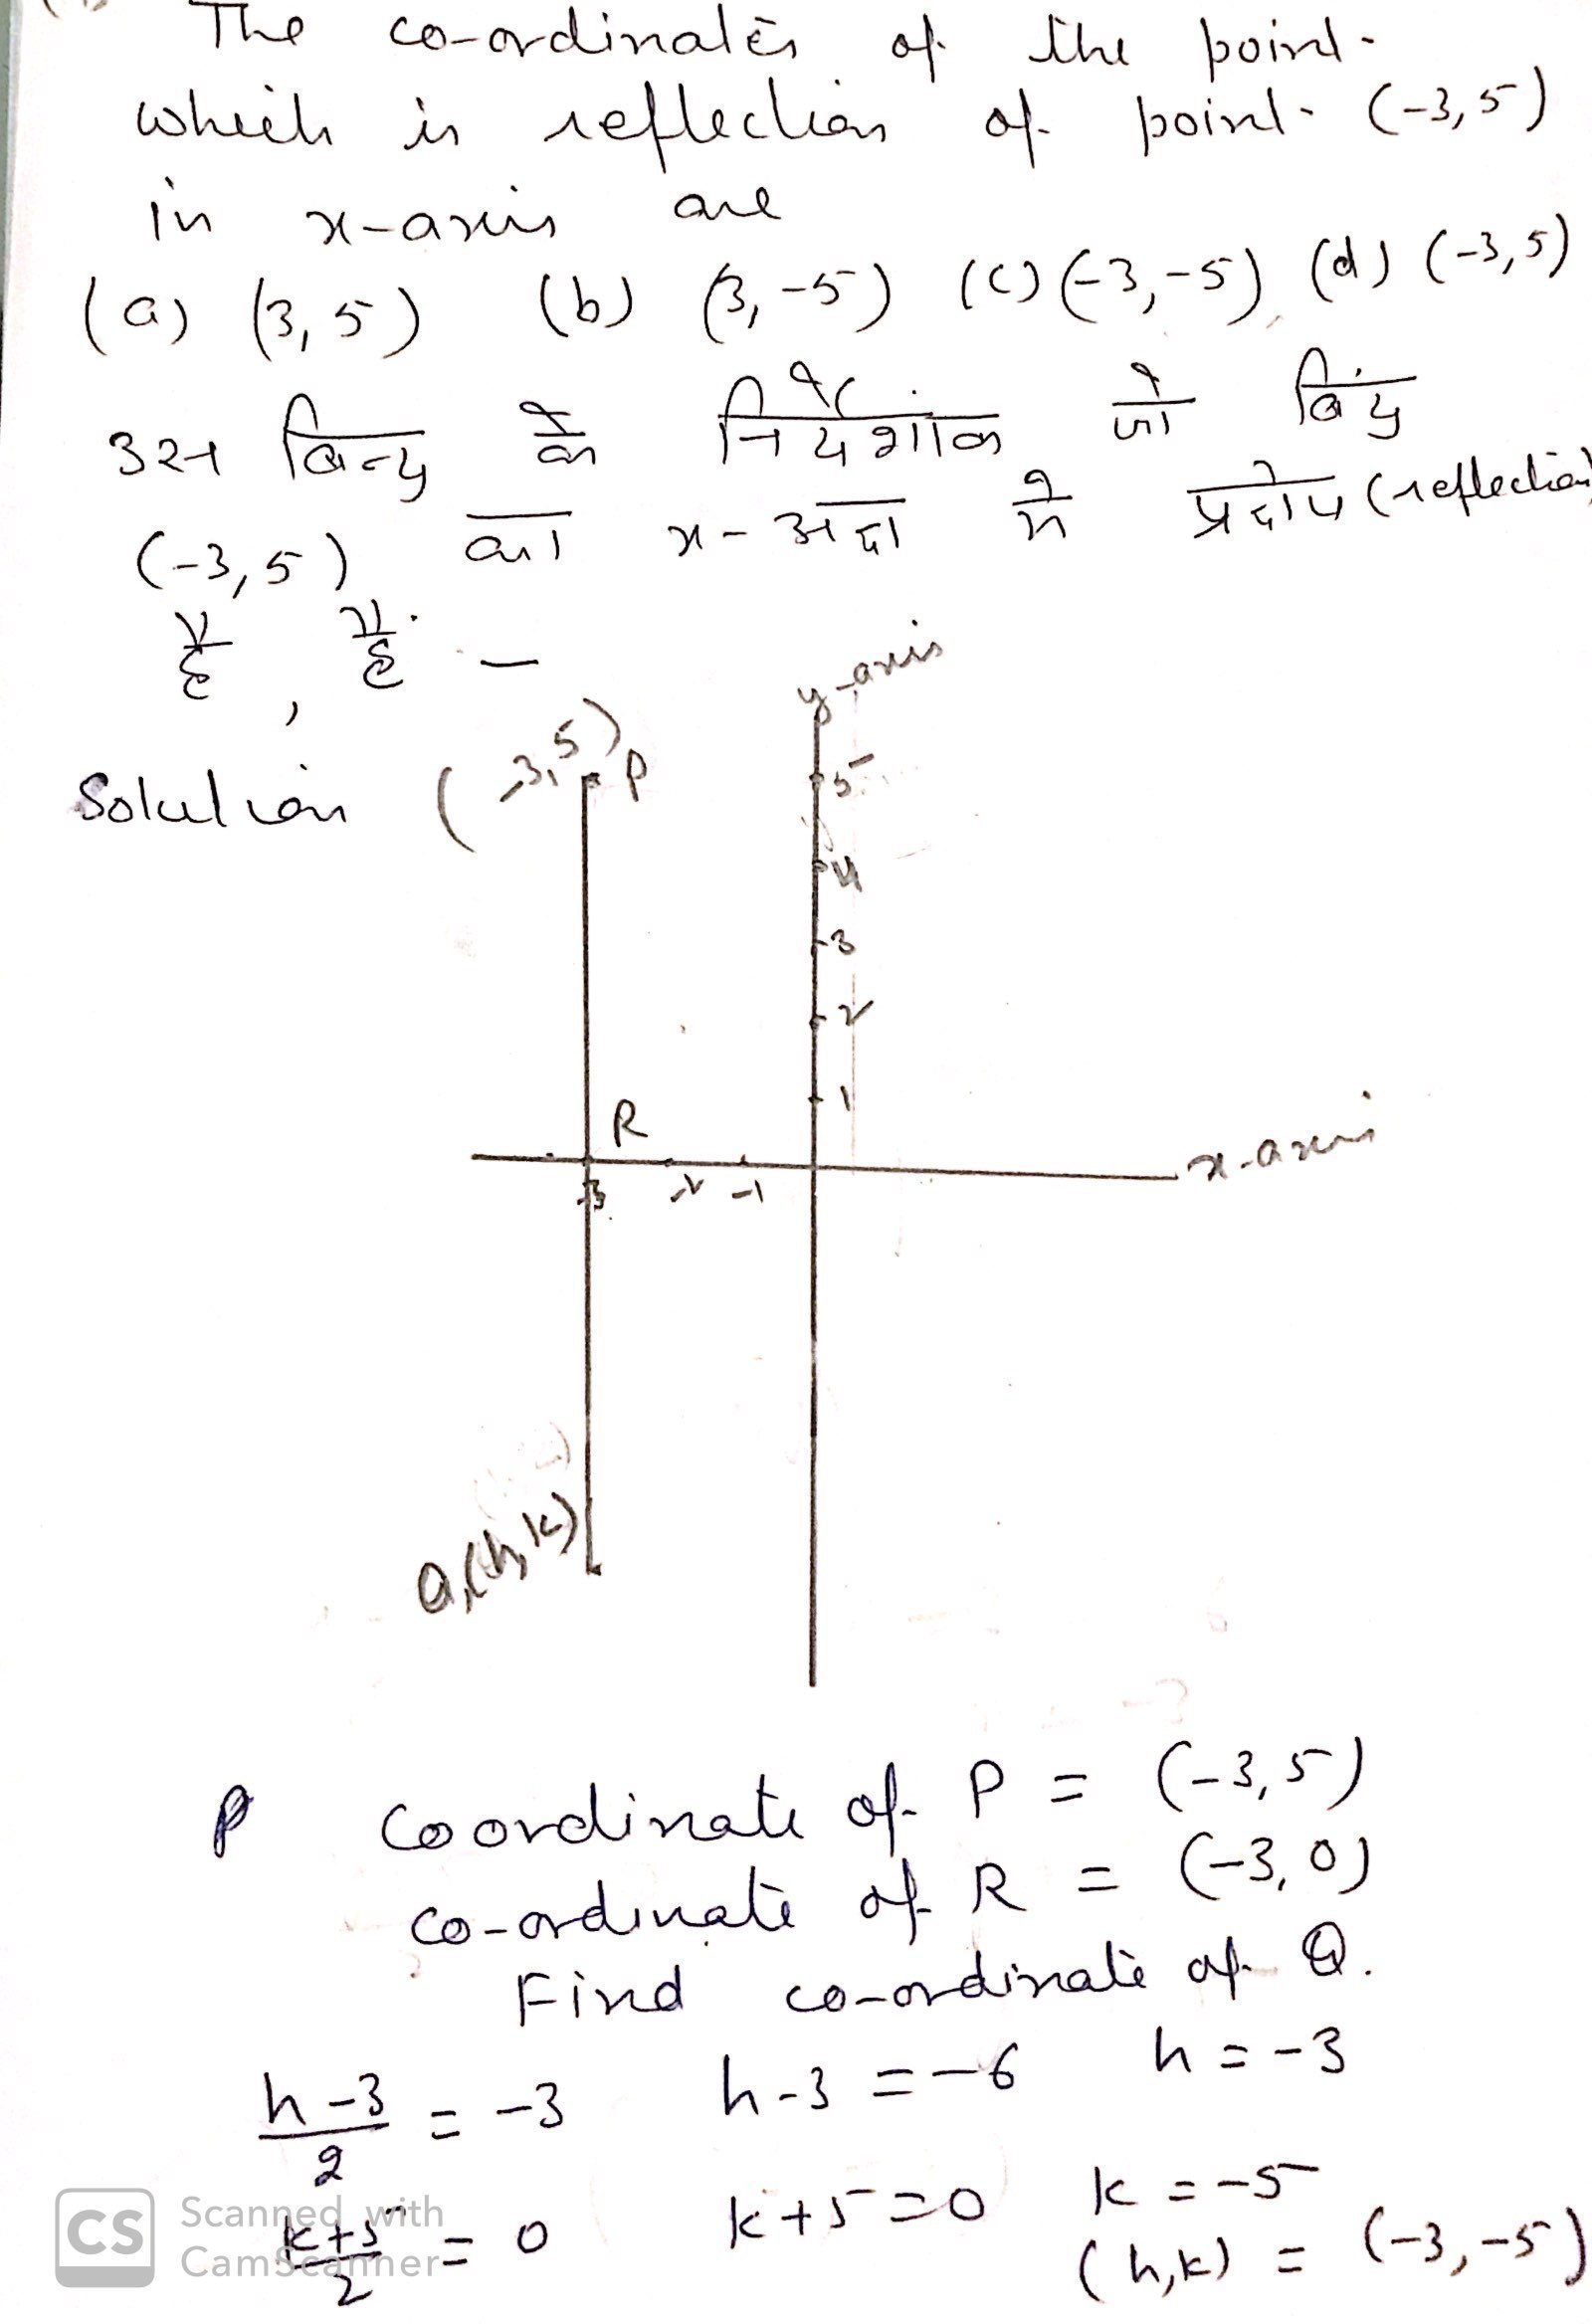 The co-ordinates of the point
which is reflection of point (-3,5)
in x-axis are
(a) (3,5) (b) (3,-5) (c) (-3,-5) (d) (-3,5)
उस बिन्दु के निर्देशांक जो बिंदु
(-3,5) का x-अक्ष में (reflection)
है, हैं -
y-axis
Solution (-3,5) P
5
4
3
2
1
R
x-axis
-3 -2 -1
Q(h,k)
P coordinate of P = (-3,5)
co-ordinate of R = (-3,0)
Find co-ordinate of Q.
h-3/2 = -3 h-3 = -6 h = -3
k+5/2 = 0 k+5=0 k = -5
(h,k) = (-3,-5)
CS Scanned with CamScanner